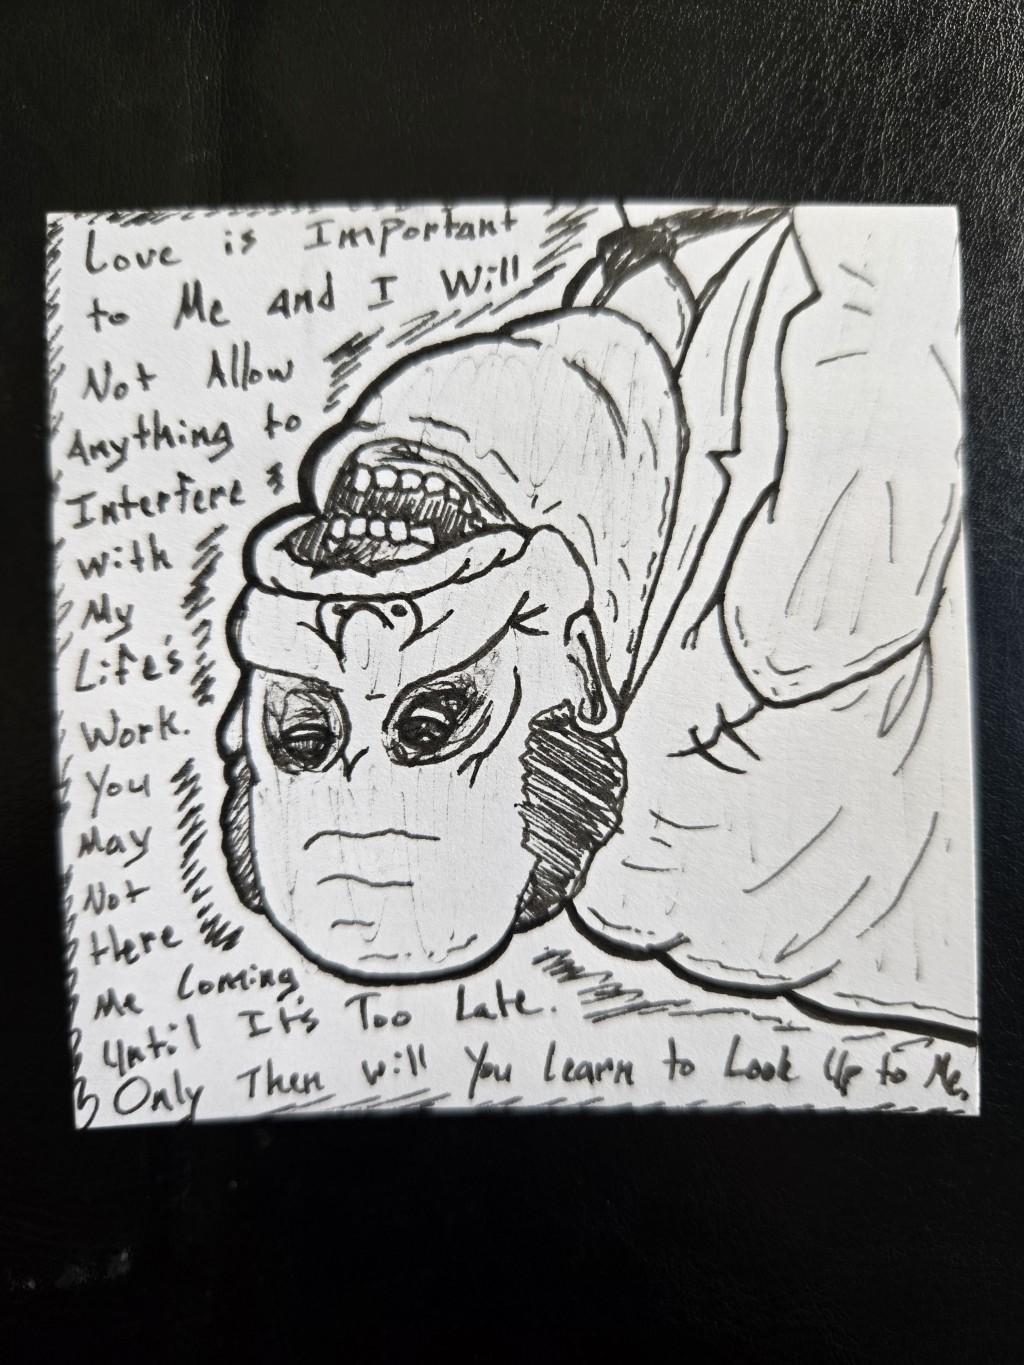 Love is Important
to Me and I Will
Not Allow
Anything to
Interfere
with
My
Life's
Work.
You
May
Not
Here
Me Coming
Until It's Too Late.
Only Then will You learn to Look Up to Me.